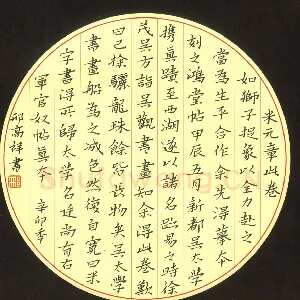 米元章此卷
如獅子捉象以全力赴之
當為生平合作余先得摹本
刻之鴻堂帖甲辰五月新都吳太學
携真蹟至西湖遂以諸名跡易之時徐
茂吳方詣吳觀書畫知余得此卷歎
曰已探驪龍珠餘皆長物矣吳太學
書畫船為之減色然復自寬曰米
字書得所歸太學名廷尚有右
軍官奴帖真 辛卯季
祥書